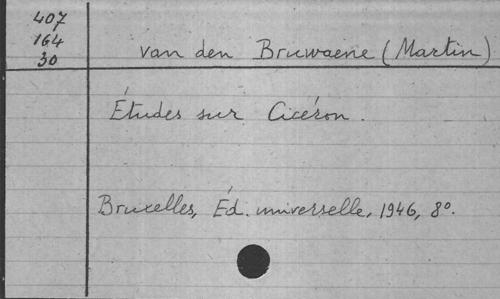 407
164
30
van den Bruwaene (Martin)
Études sur Cicéron.
Bruxelles, Éd. universelle, 1946, 8°.